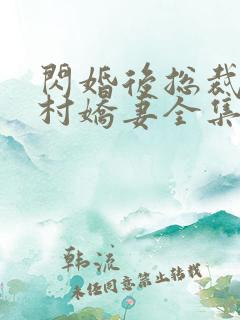 閃婚後總裁
村嬌妻全集
韩流
未经同意禁止转载